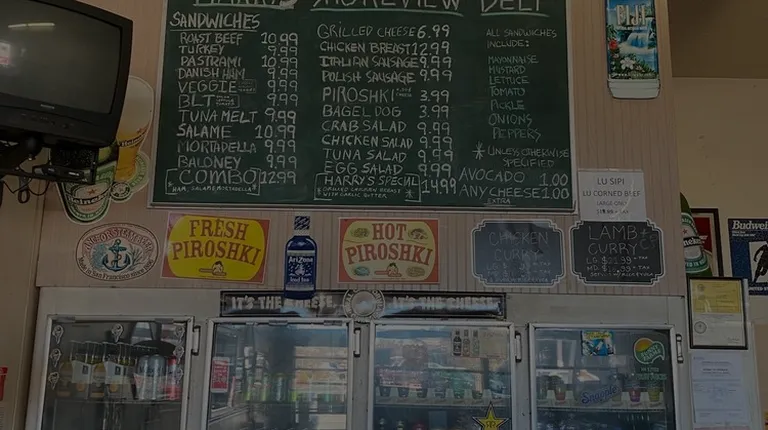 HARRY'S HOREVIEW DELI
SANDWICHES
ROAST BEEF 10.99
TURKEY 9.99
PASTRAMI 10.99
DANISH HAM 9.99
VEGGIE 9.99
BLT 9.99
TUNA MELT 9.99
SALAME 10.99
MORTADELLA 9.99
BALONEY 9.99
COMBO 12.99
HAM, SALAME, MORTADELLA
GRILLED CHEESE 6.99
CHICKEN BREAST 12.99
ITALIAN SAUSAGE 9.99
POLISH SAUSAGE 9.99
PIROSHKI 3.99
BAGEL DOG 3.99
CRAB SALAD 9.99
CHICKEN SALAD 9.99
TUNA SALAD 9.99
EGG SALAD 9.99
HARRY'S SPECIAL 14.99
GRILLED CHICKEN BREAST
WITH GARLIC BUTTER
ALL SANDWICHES
INCLUDE:
MAYONNAISE
MUSTARD
LETTUCE
TOMATO
PICKLE
ONIONS
PEPPERS
* UNLESS OTHERWISE
SPECIFIED
AVOCADO 1.00
ANY CHEESE 1.00
EXTRA
FIJI
LU SIPI
LU CORNED BEEF
Heineken
ANCHOR STEAM BEER
Made in San Francisco since 1896
FRESH
PIROSHKI
AriZona
HOT
PIROSHKI
CHICKEN
CURRY
LAMB
CURRY
Budweiser
IT'S THE CHEESE.
IT'S THE CHEESE.
Snapple